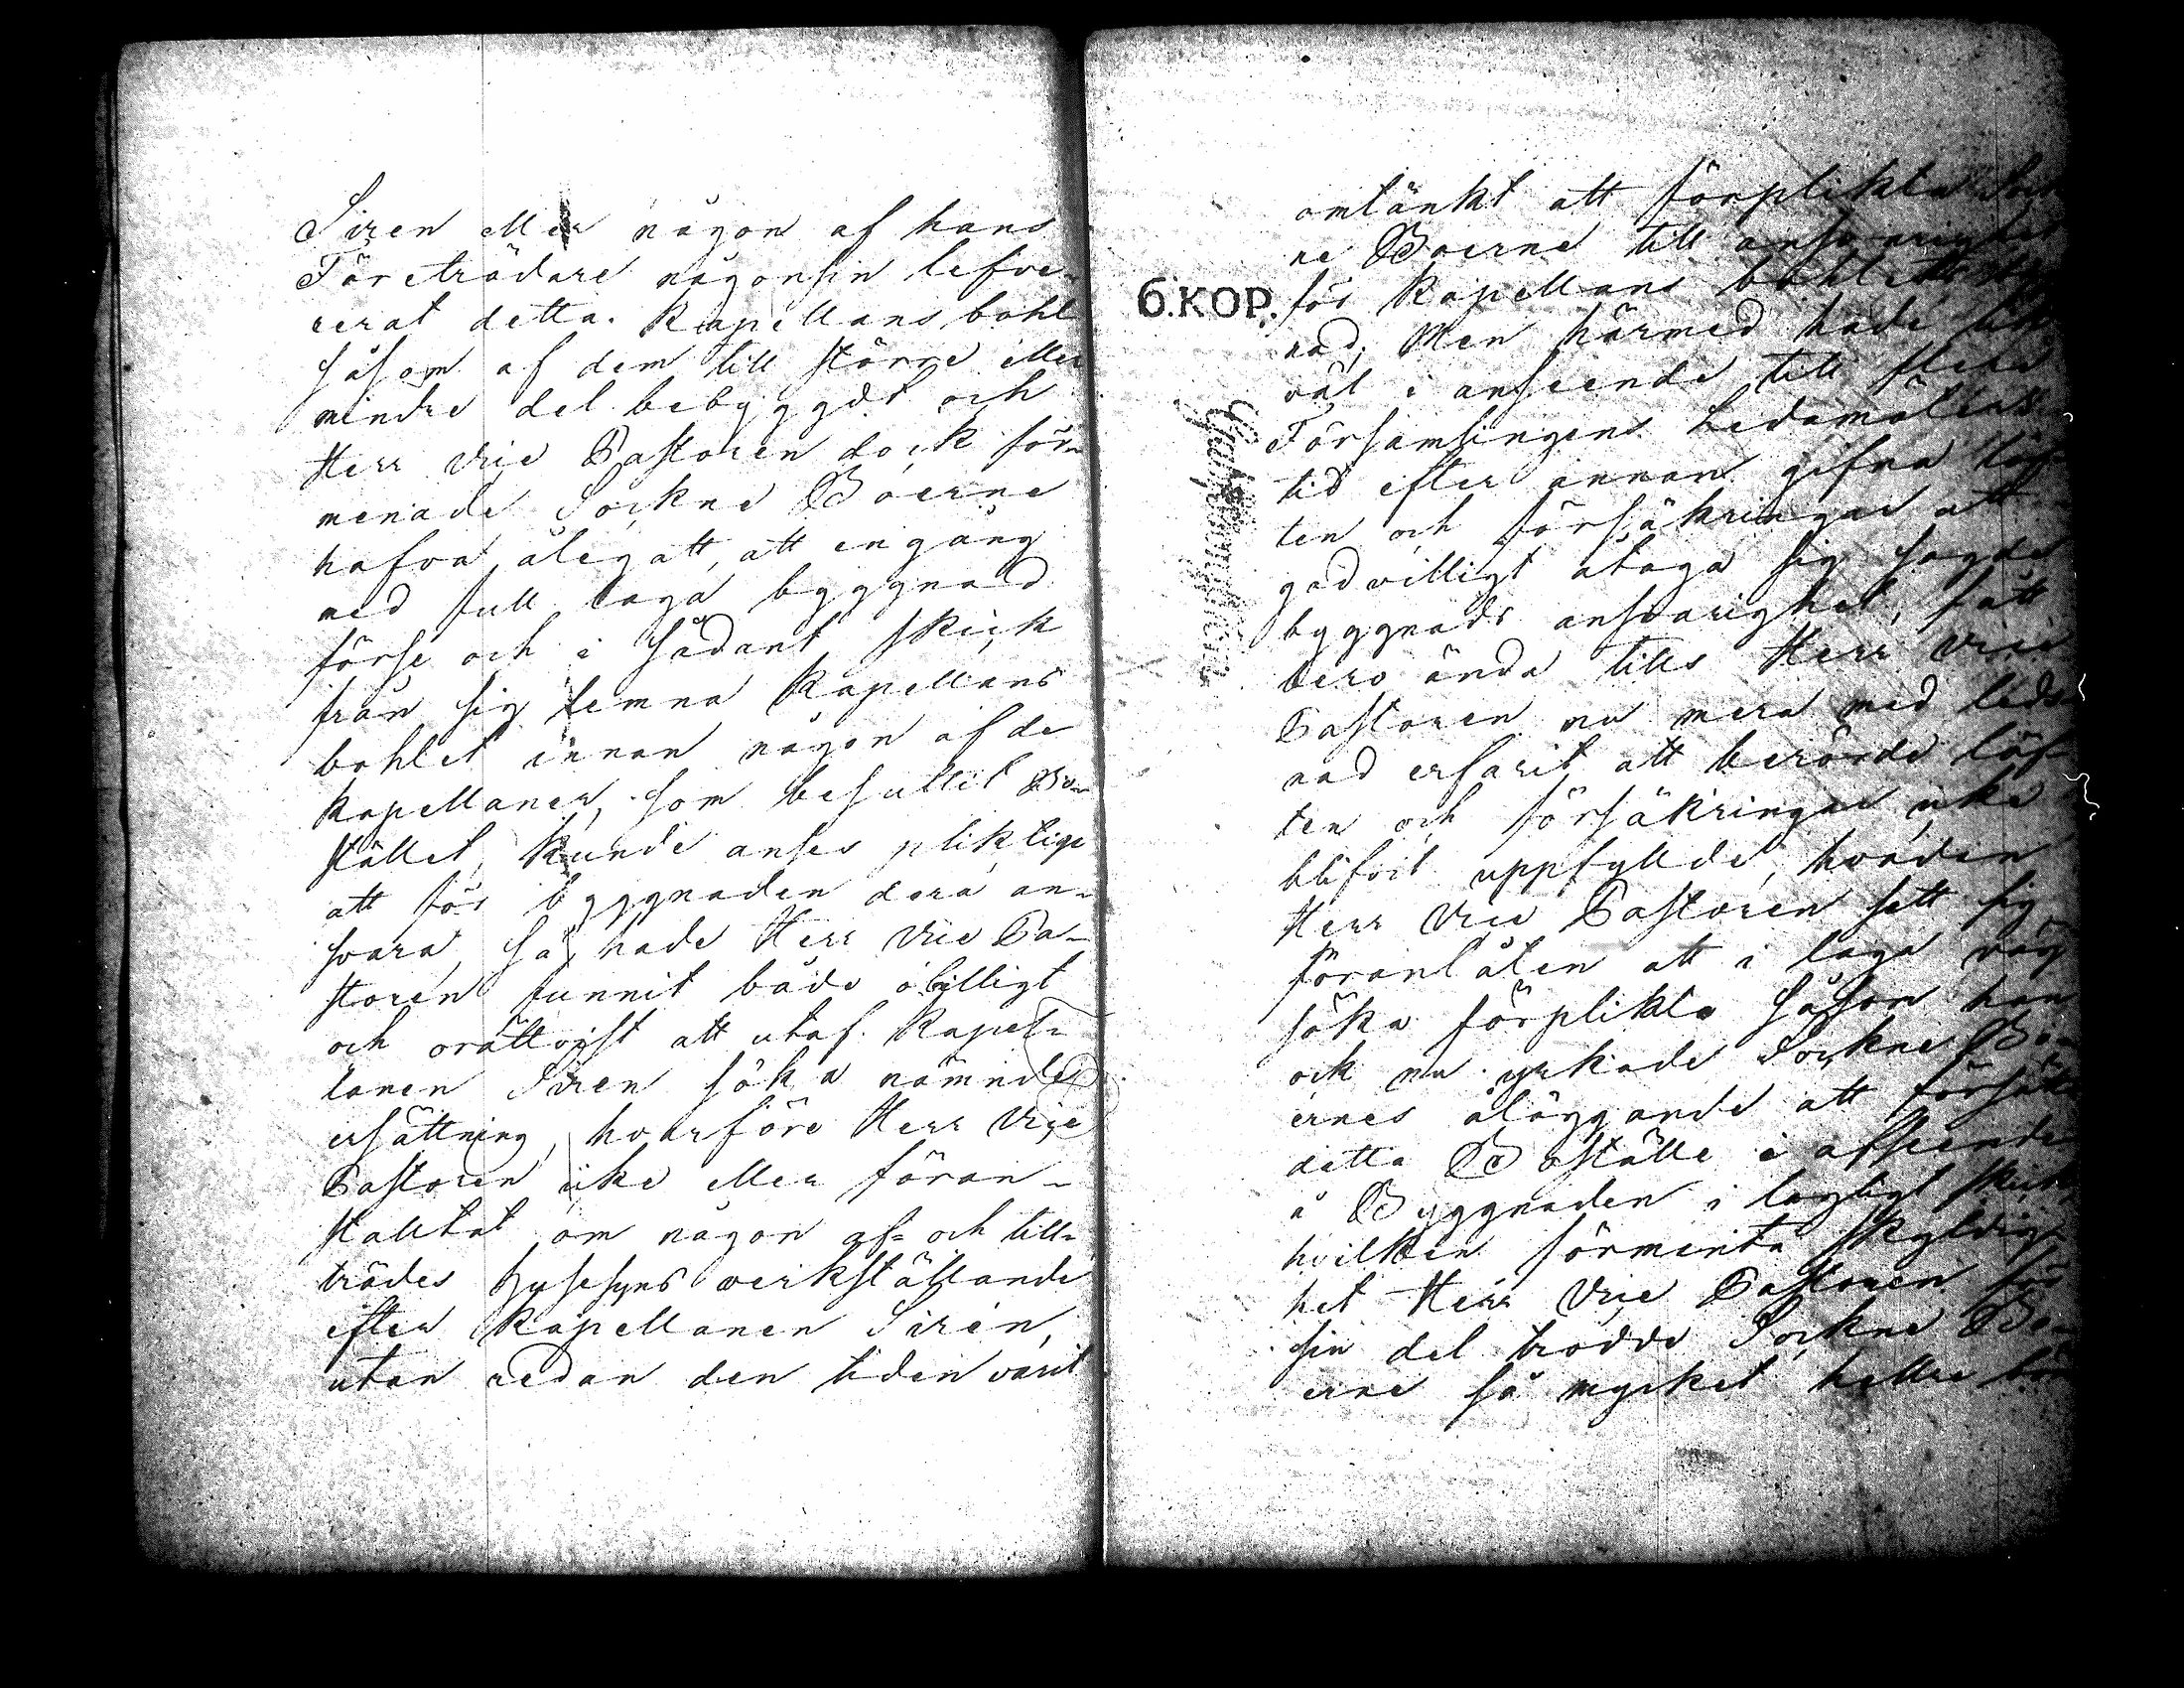 Siren eller någon af hans
Företrädare någonsin lefve-
rerat detta Kapellans bohl
såsom af dem till större eller
mindre del bebyggdt och
Herr Vice Pastoren dock för-
menade Sockne Boerne
hafva ålegatt, att en gång
med full laga byggnad
förse och i sådant skick
från sig lemna Kapellans
bohlet innan någon af de
Kapellaner, som besuttit Bo-
stället, kunde anses pliktige
att för byggnaden dera an-
svara, så hade Herr Vice Pa-
storen funnit både obilligt
och orättvist att utaf Kapel-
lanen Siren söka nämnde
ersättning, hvarföre Herr Vice
Pastoren icke eller föran-
staltat om någon af- och till-
trädes Husesyns verkställande
efter Kapellanen Sirén,
utan redan den tiden varit
omtänkt att förplikta Sock-
ne Boerne till ansvarighet
6.KOP. för Kapellans bohlets
nad; Men härmed hade lik-
väl i anseende till flere
Församlingens Ledamöters
tid efter annan gifna löf-
ten och försäkringar att
godvilligt åtaga sig sagde
byggnads ansvarighet, fått
bero ända tills Herr Vice
Pastoren nu mera med leds-
nad erfarit att berörde löf-
ten och försäkringar icke
blifvit uppfyllde, hvarden
Herr Vice Pastoren sett sig
föranlåten att i laga väg
söka förplikta såsom han
ock nu yrkade Sockne Bo-
ernes åläggande att försätta
detta Boställe i afseende
å Byggnaden i lagligt skick,
hvilken förmenta skyldig-
het Herr Vice Pastoren för
sin del trodde Sockne Bo-
erne så mycket hellre böra